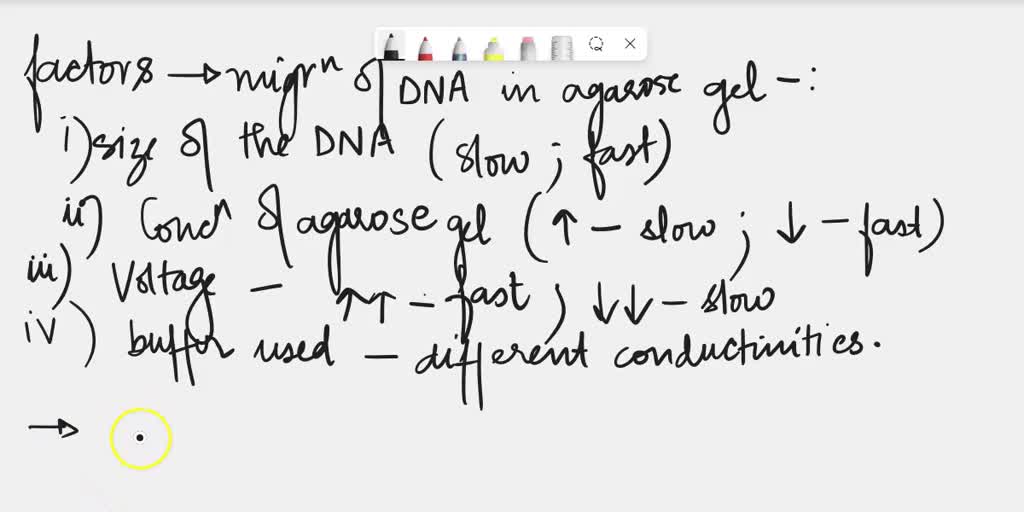 factors → migrⁿ of DNA in agarose gel -:
i) size of the DNA (slow ; fast)
ii) Concⁿ of agarose gel (↑ - slow ; ↓ - fast)
iii) Voltage - ↑↑ - fast ; ↓↓ - slow
iv) buffer used - different conductinities.
→